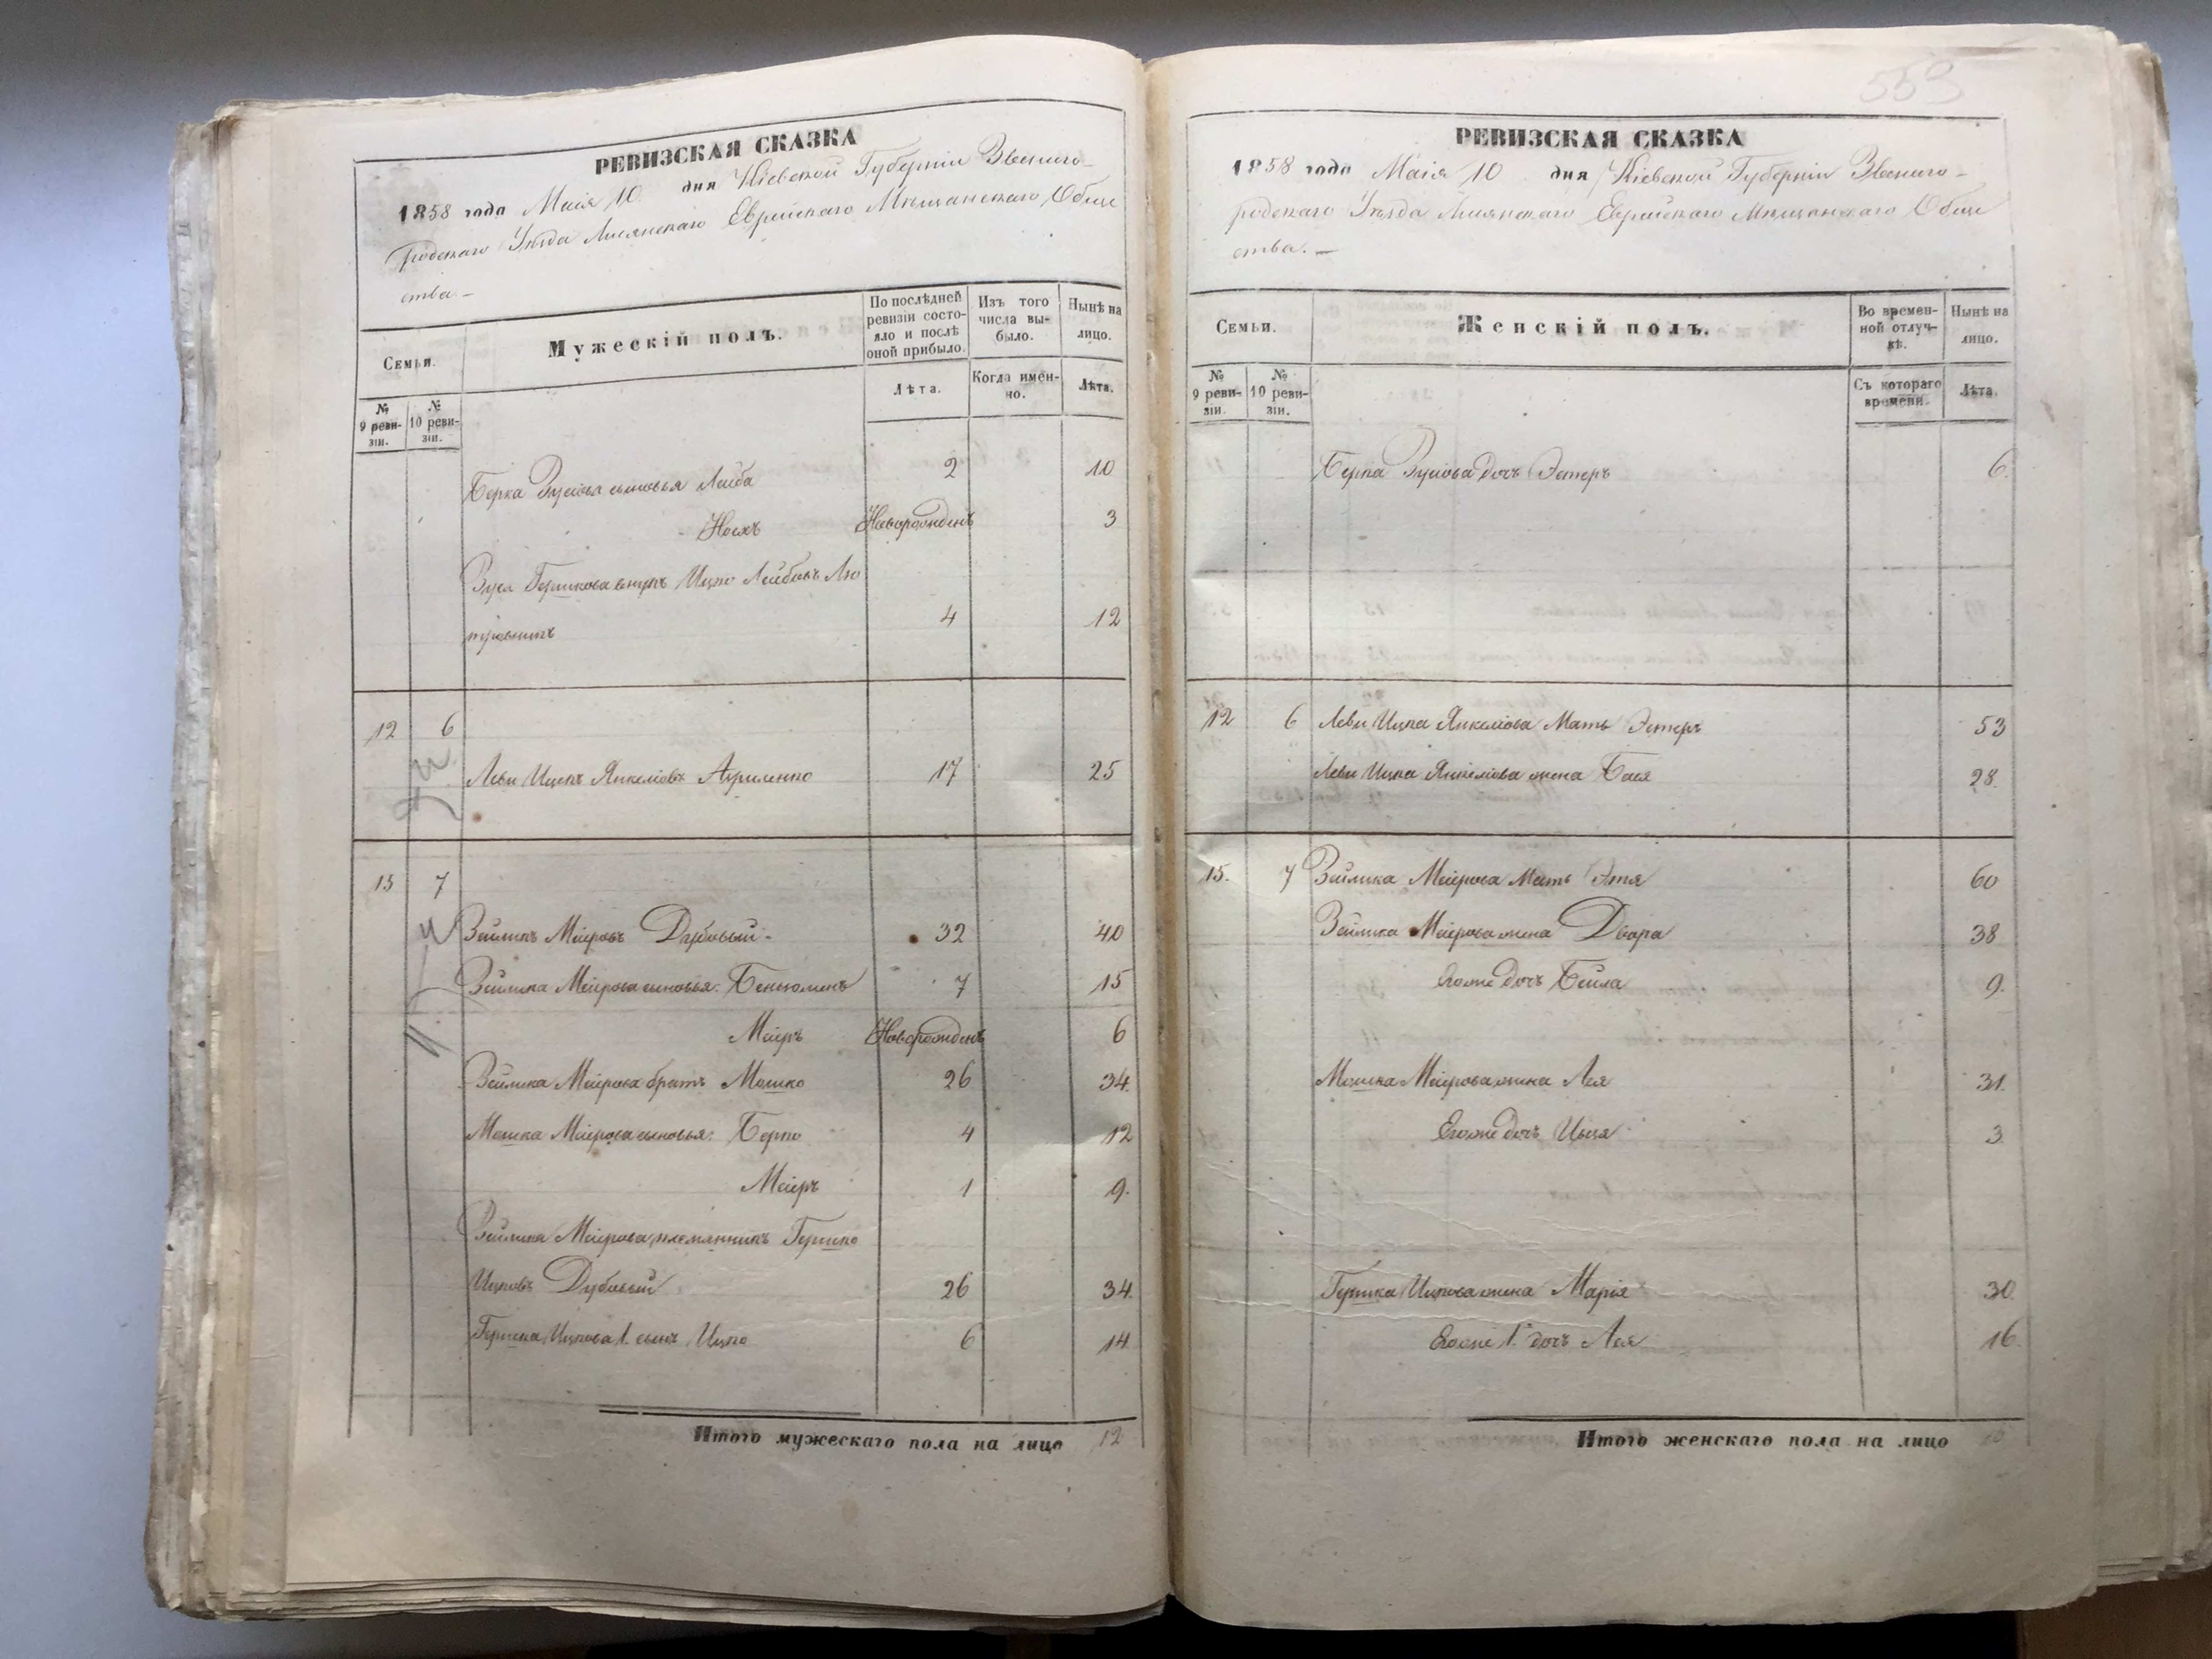 РЕВИЗСКАЯ СКАЗКА
1858 года Маія 10 дня Кіевской Губерніи Звениго-
родскаго Уѣзда Лисянскаго Еврейскаго Мѣщанскаго Обще
ства.—
Семьи.
№ 9 ревизіи.
№ 10 ревизіи.
Мужескій полъ.
По послѣдней ревизіи состояло и послѣ оной прибыло.
Лѣта.
Изъ того числа выбыло.
Когда именно.
Нынѣ на лицо.
Лѣта.
Берка Зусіова сыновья Лейба 2 10
Новорожденъ 3
Зуся Гершкова внукъ Ицко Лейбовъ
4 12
12 6
Леви Ицекъ Янкеліовъ 17 25
15 7
Зейликъ Меіровъ Дубовый - 32 40
Зейлика Меірова сыновья: Беньюменъ 7 15
Меіръ Новорожденъ 6
Зейлика Меірова братъ Мошко 26 34.
Мошка Меірова сыновья: Берко 4 12
Меіръ 1 9.
Зейлика Меірова племянникъ Гершко
Ицковъ Дубовый 26 34.
Гершка Ицкова 1. сынъ Ицко 6 14
Итого мужескаго пола на лицо 12
559
РЕВИЗСКАЯ СКАЗКА
1858 года Маія 10 дня Кіевской Губерніи Звениго-
родскаго Уѣзда Лисянскаго Еврейскаго Мѣщанскаго Обще
ства.—
Семьи.
№ 9 ревизіи.
№ 10 ревизіи.
Женскій полъ.
Во временной отлучкѣ.
Съ котораго времени.
Нынѣ на лицо.
Лѣта.
Берка Зусіова дочь Эстеръ 6.
12 6 Леви Ицка Янкеліова Мать Эстеръ 53
Леви Ицка Янкеліова жена Бася 28.
15. 7 Зейлика Меірова Мать Этя 60
Зейлика Меірова жена Двора 38
Егоже дочь Бейла 9.
Мошка Меірова жена Лея 31.
Егоже дочь 3
Гершка Ицкова жена Марія 30
Егоже 1. дочь Лея 16.
Итого женскаго пола на лицо 10